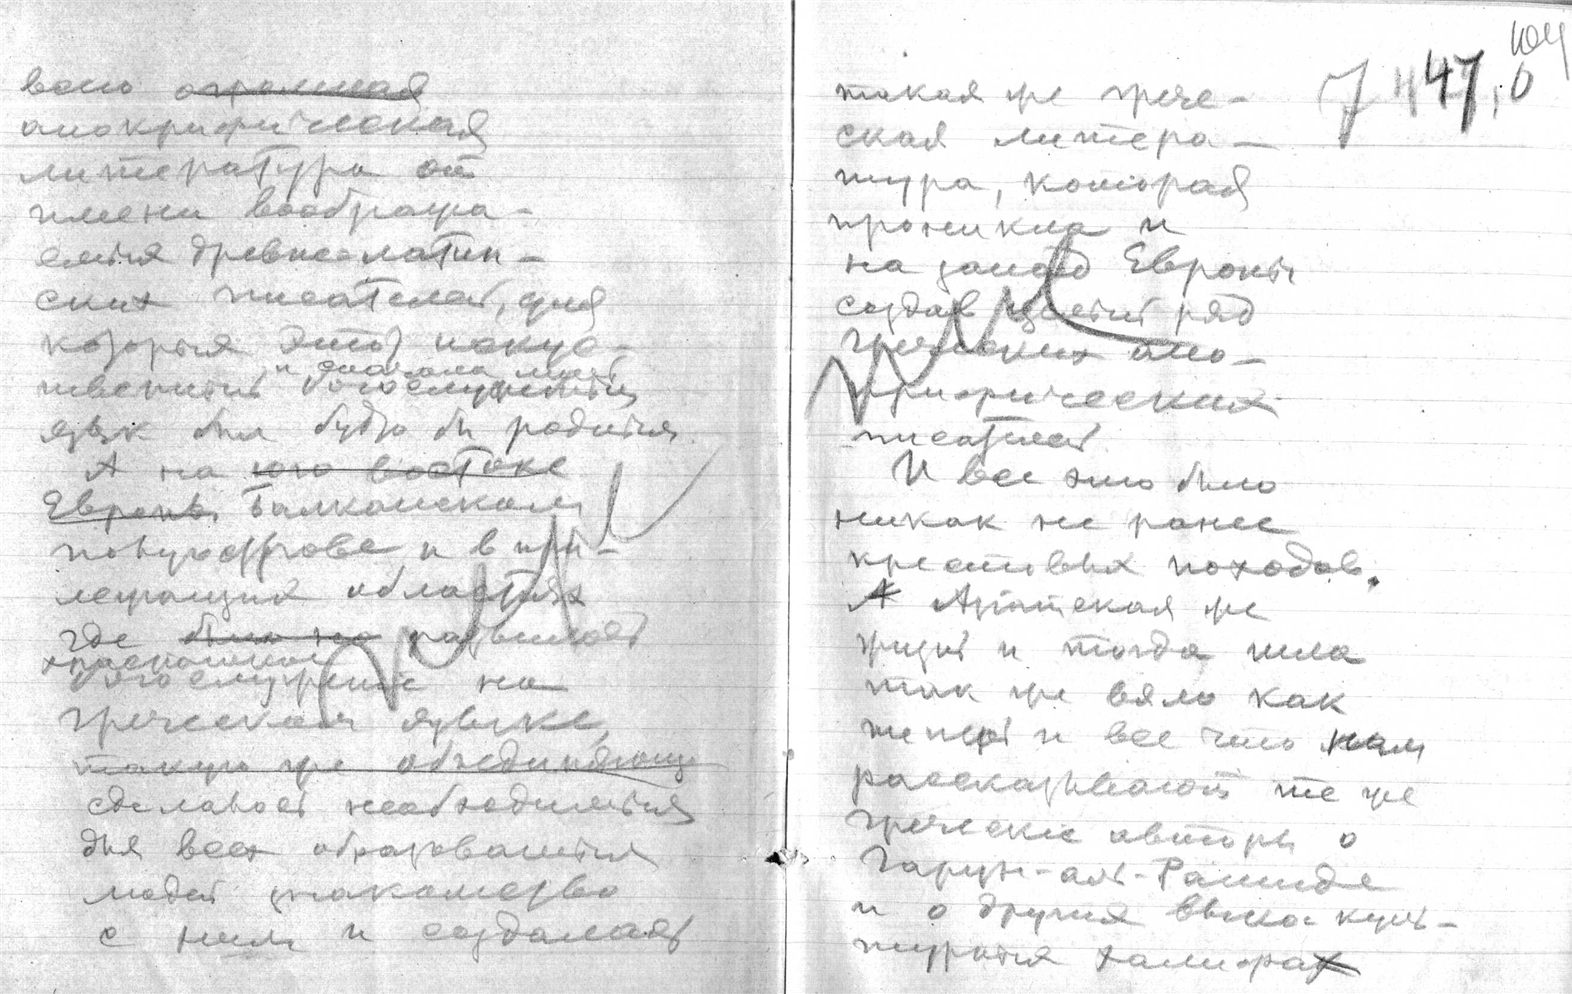 вано огромная
апокрифическая
литература от
имени вообража-
емых древнелатин-
ских писателей, для
которых этот искус-
ственный и сначала
богослужебный
язык был будто бы родным.
А на юго востоке
Европы, Балканском
полуострове и в при-
лежащих областях
где было но развилось
христианское
богослужение на
греческом языке,
такую же объединяющ
сделалось необходимым
для всех образованных
людей знакомство
с ним и создалась
7 447,0
такая же грече-
ская литера-
тура, которая
проникла и
на запад Европы
создав целый ряд
греческих апо-
крифических
писателей
И все это было
никак не ранее
крестовых походов.
А Азиатская же
жизнь и тогда шла
так же вяло как
теперь и все что нам
рассказывают те же
греческие авторы о
Гарун-аль-Рашиде
и о других высоко куль-
турных халифах